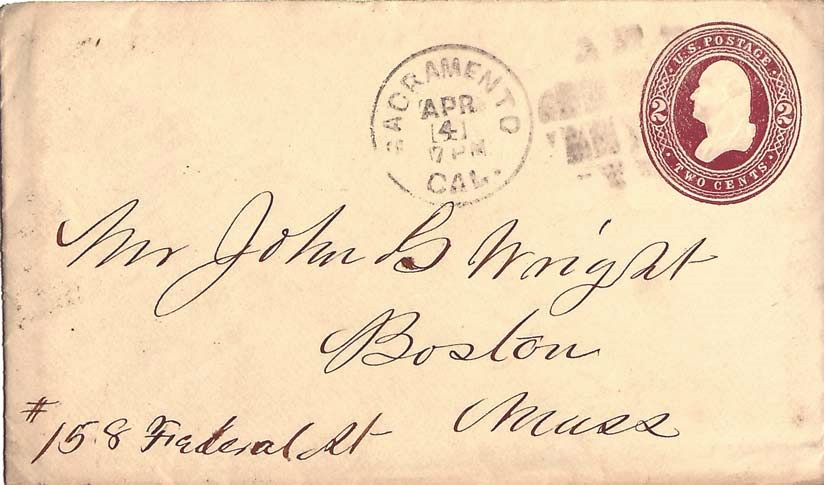 SACRAMENTO
APR
4
7 PM
CAL.
U.S. POSTAGE
2 2
TWO CENTS
Mr John G Wright
Boston
Mass
# 158 Federal St